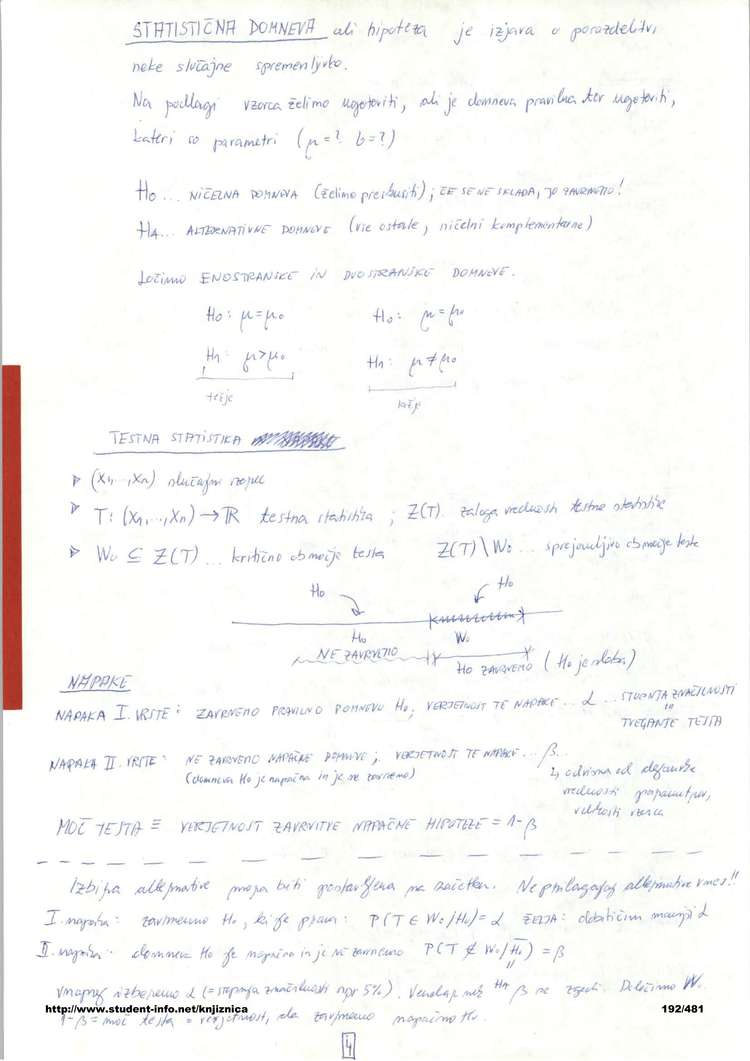 STATISTIČNA DOMNEVA ali hipoteza je izjava o porazdelitvi
neke slučajne spremenljivke.
Na podlagi vzorca želimo ugotoviti, ali je domneva pravilna ter ugotoviti,
kateri so parametri (μ=? b=?)
H₀... NIČELNA DOMNEVA (želimo preizkusiti); ČE SE NE SKLADA, JO ZAVRNEMO!
HA... ALTERNATIVNE DOMNEVE (vse ostale, ničelni komplementarne)
Ločimo ENOSTRANSKE IN DVOSTRANSKE DOMNEVE.
H₀: μ=μ₀ H₀: μ=μ₀
H₁: μ>μ₀ H₁: μ≠μ₀
težje
TESTNA STATISTIKA
(X₁,...,Xₙ) slučajni vzorec
T: (X₁,...,Xₙ) → ℝ testna statistika ; Z(T) zaloga vrednosti testne statistike
W₀ ⊆ Z(T) ... kritično območje testa Z(T) \ W₀ ... sprejemljivo območje testa
H₀ H₀
H₀ W₀
NE ZAVRNEMO H₀ ZAVRNEMO (H₀ je slaba)
NAPAKE
NAPAKA I. VRSTE: ZAVRNEMO PRAVILNO DOMNEVO H₀; VERJETNOST TE NAPAKE ... α ... STOPNJA ZNAČILNOSTI
TVEGANJE TESTA
NAPAKA II. VRSTE: NE ZAVRNEMO NAPAČNE DOMNEVE; VERJETNOST TE NAPAKE ... β...
(domneva H₀ je napačna in je ne zavrnemo) ↳ odvisna od dejanske
vrednosti parametrov,
velikosti vzorca
MOČ TESTA ≡ VERJETNOST ZAVRNITVE NAPAČNE HIPOTEZE = 1-β
Izbira alternative mora biti postavljena na začetku. Ne prilagajaj alternative vmes!!
I. napaka: zavrnemo H₀, ki je prava: P(T ∈ W₀/H₀) = α ŽELJA: dobiti čim manjši α
II. napaka: domneva H₀ je napačna in je ne zavrnemo P(T ∉ W₀/H̄₀) = β
HA
vnaprej izberemo α (= stopnja značilnosti npr 5%). β se zgodi. Določimo W₀
1-β = moč testa = verjetnost, da zavrnemo napačno H₀.
http://www.student-info.net/knjiznica 192/481